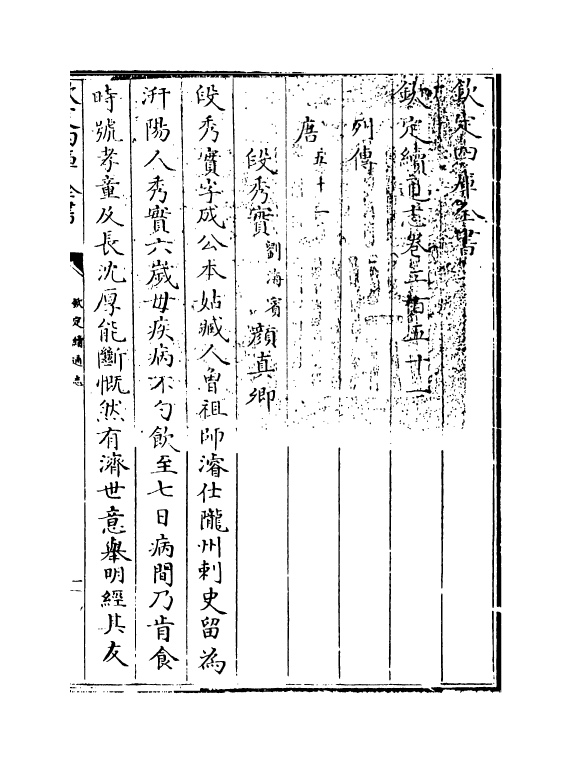 欽定四庫全書
欽定續通志卷二百五十一
列傳
唐五十一
段秀實劉海賓 顔真卿
段秀實字成公本姑臧人曾祖師濬仕隴州刺史留為
汧陽人秀實六歲母疾病不勺飲至七日病間乃肯食
時號孝童及長沈厚能斷慨然有濟世意舉明經其友
欽定四庫全書
欽定續通志